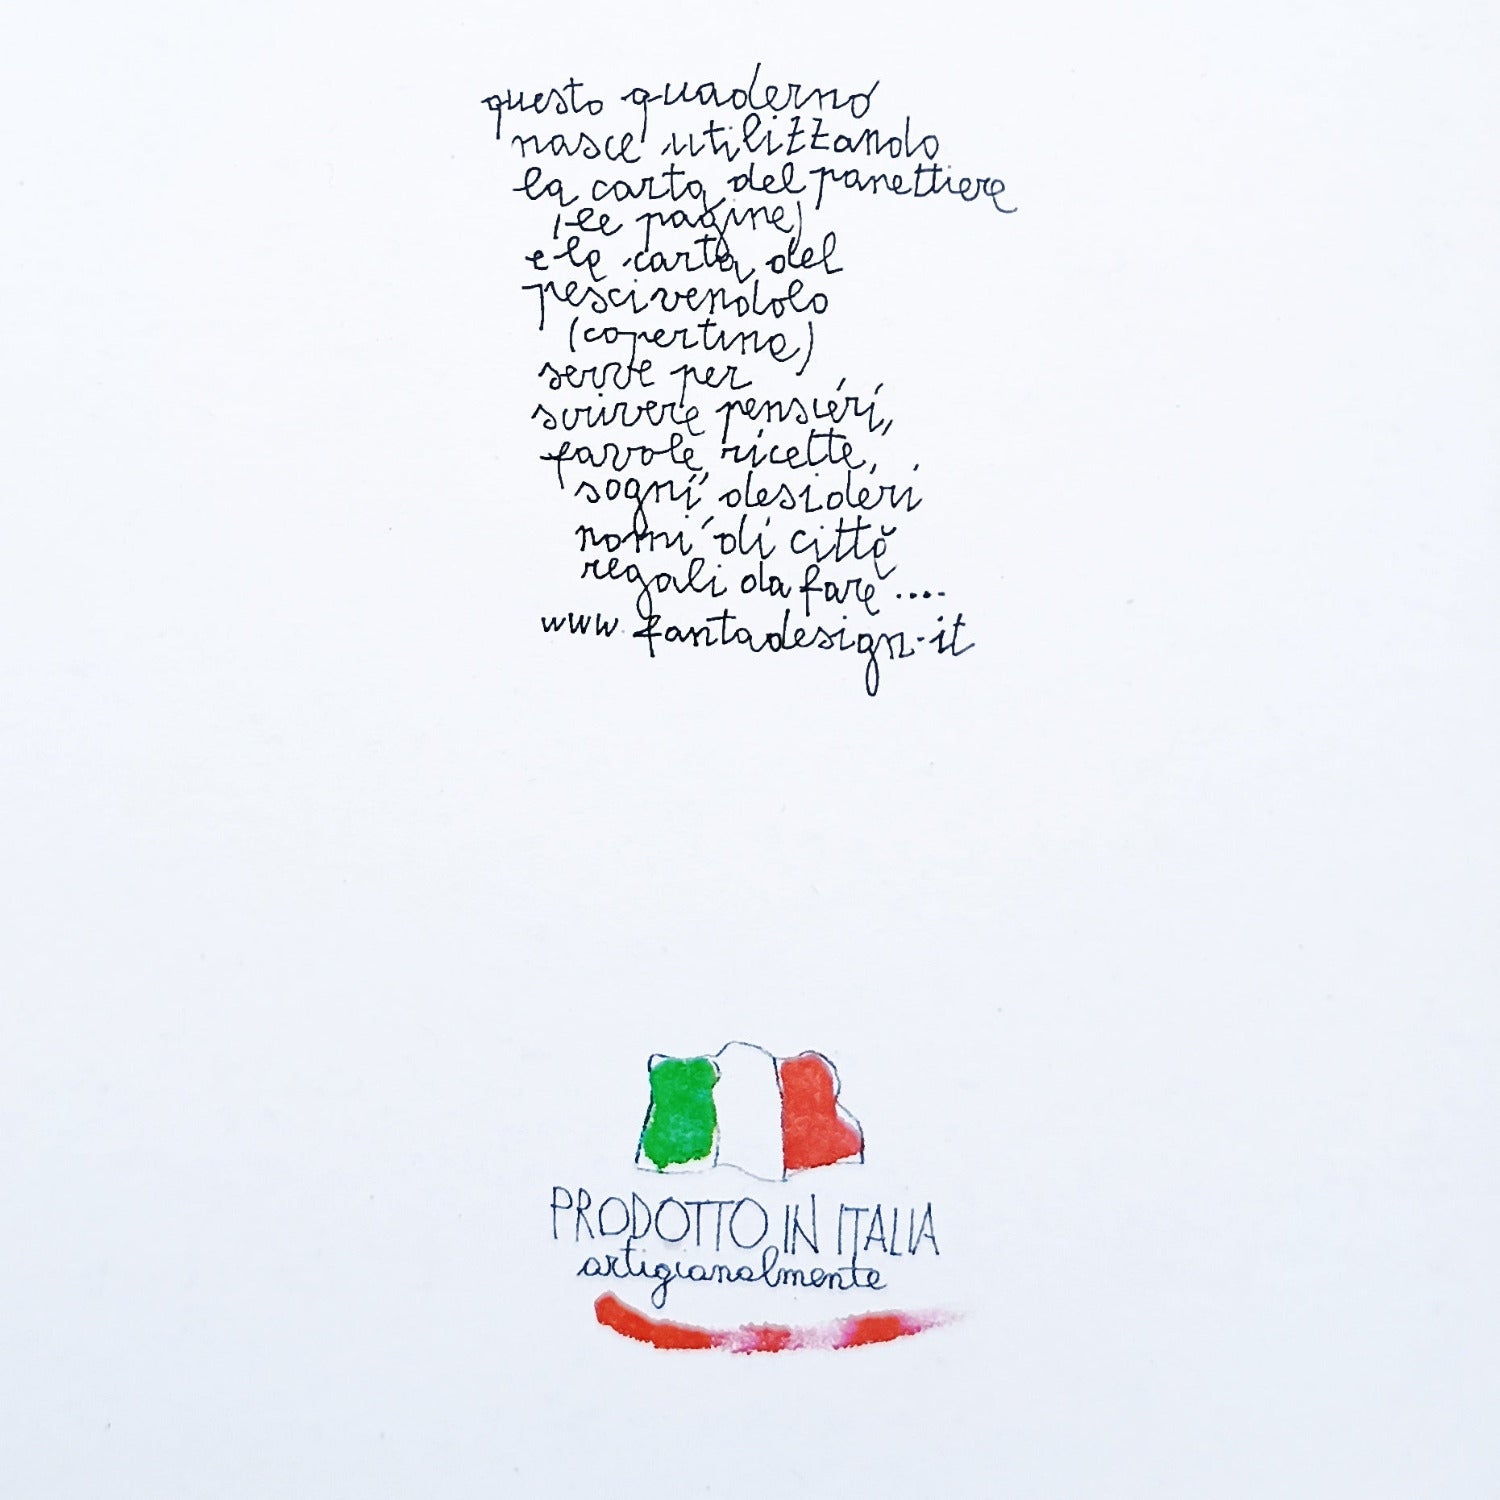 questo quaderno
nasce utilizzando
la carta del panettiere
(le pagine)
e la carta del
pescivendolo
(copertina)
serve per
scrivere pensieri,
favole, ricette,
sogni, desideri
nomi di città
regali da fare ....
www.fantadesign.it
PRODOTTO IN ITALIA
artigianalmente